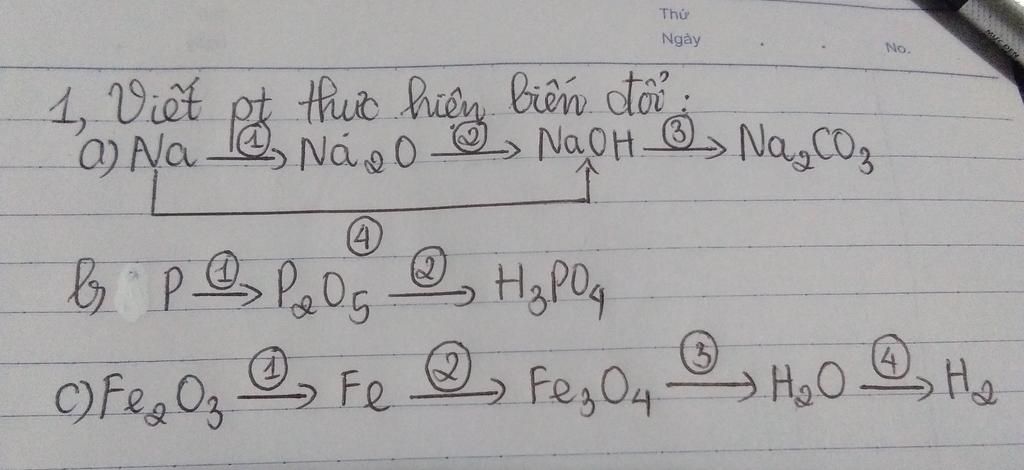 Thứ
Ngày . . No.
1, Viết pt thực hiện biến đổi:
a) Na ①→ Ná₂O ②→ NaOH ③→ Na₂CO₃
④
b, P ①→ P₂O₅ ②→ H₃PO₄
c) Fe₂O₃ ①→ Fe ②→ Fe₃O₄ ③→ H₂O ④→ H₂